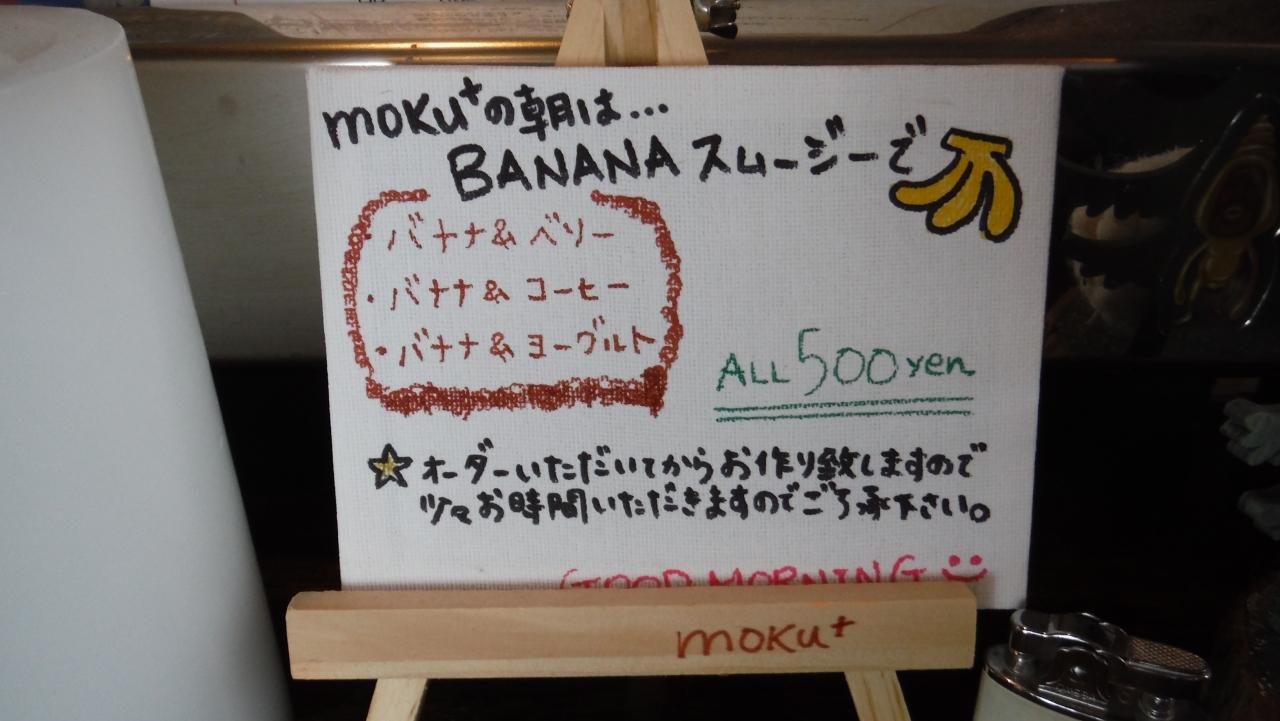 moku+の朝は...
BANANAスムージーで
・バナナ&ベリー
・バナナ&コーヒー
・バナナ&ヨーグルト
ALL 500yen
☆オーダーいただいてからお作り致しますので
少々お時間いただきますのでご了承下さい。
GOOD MORNING
moku+